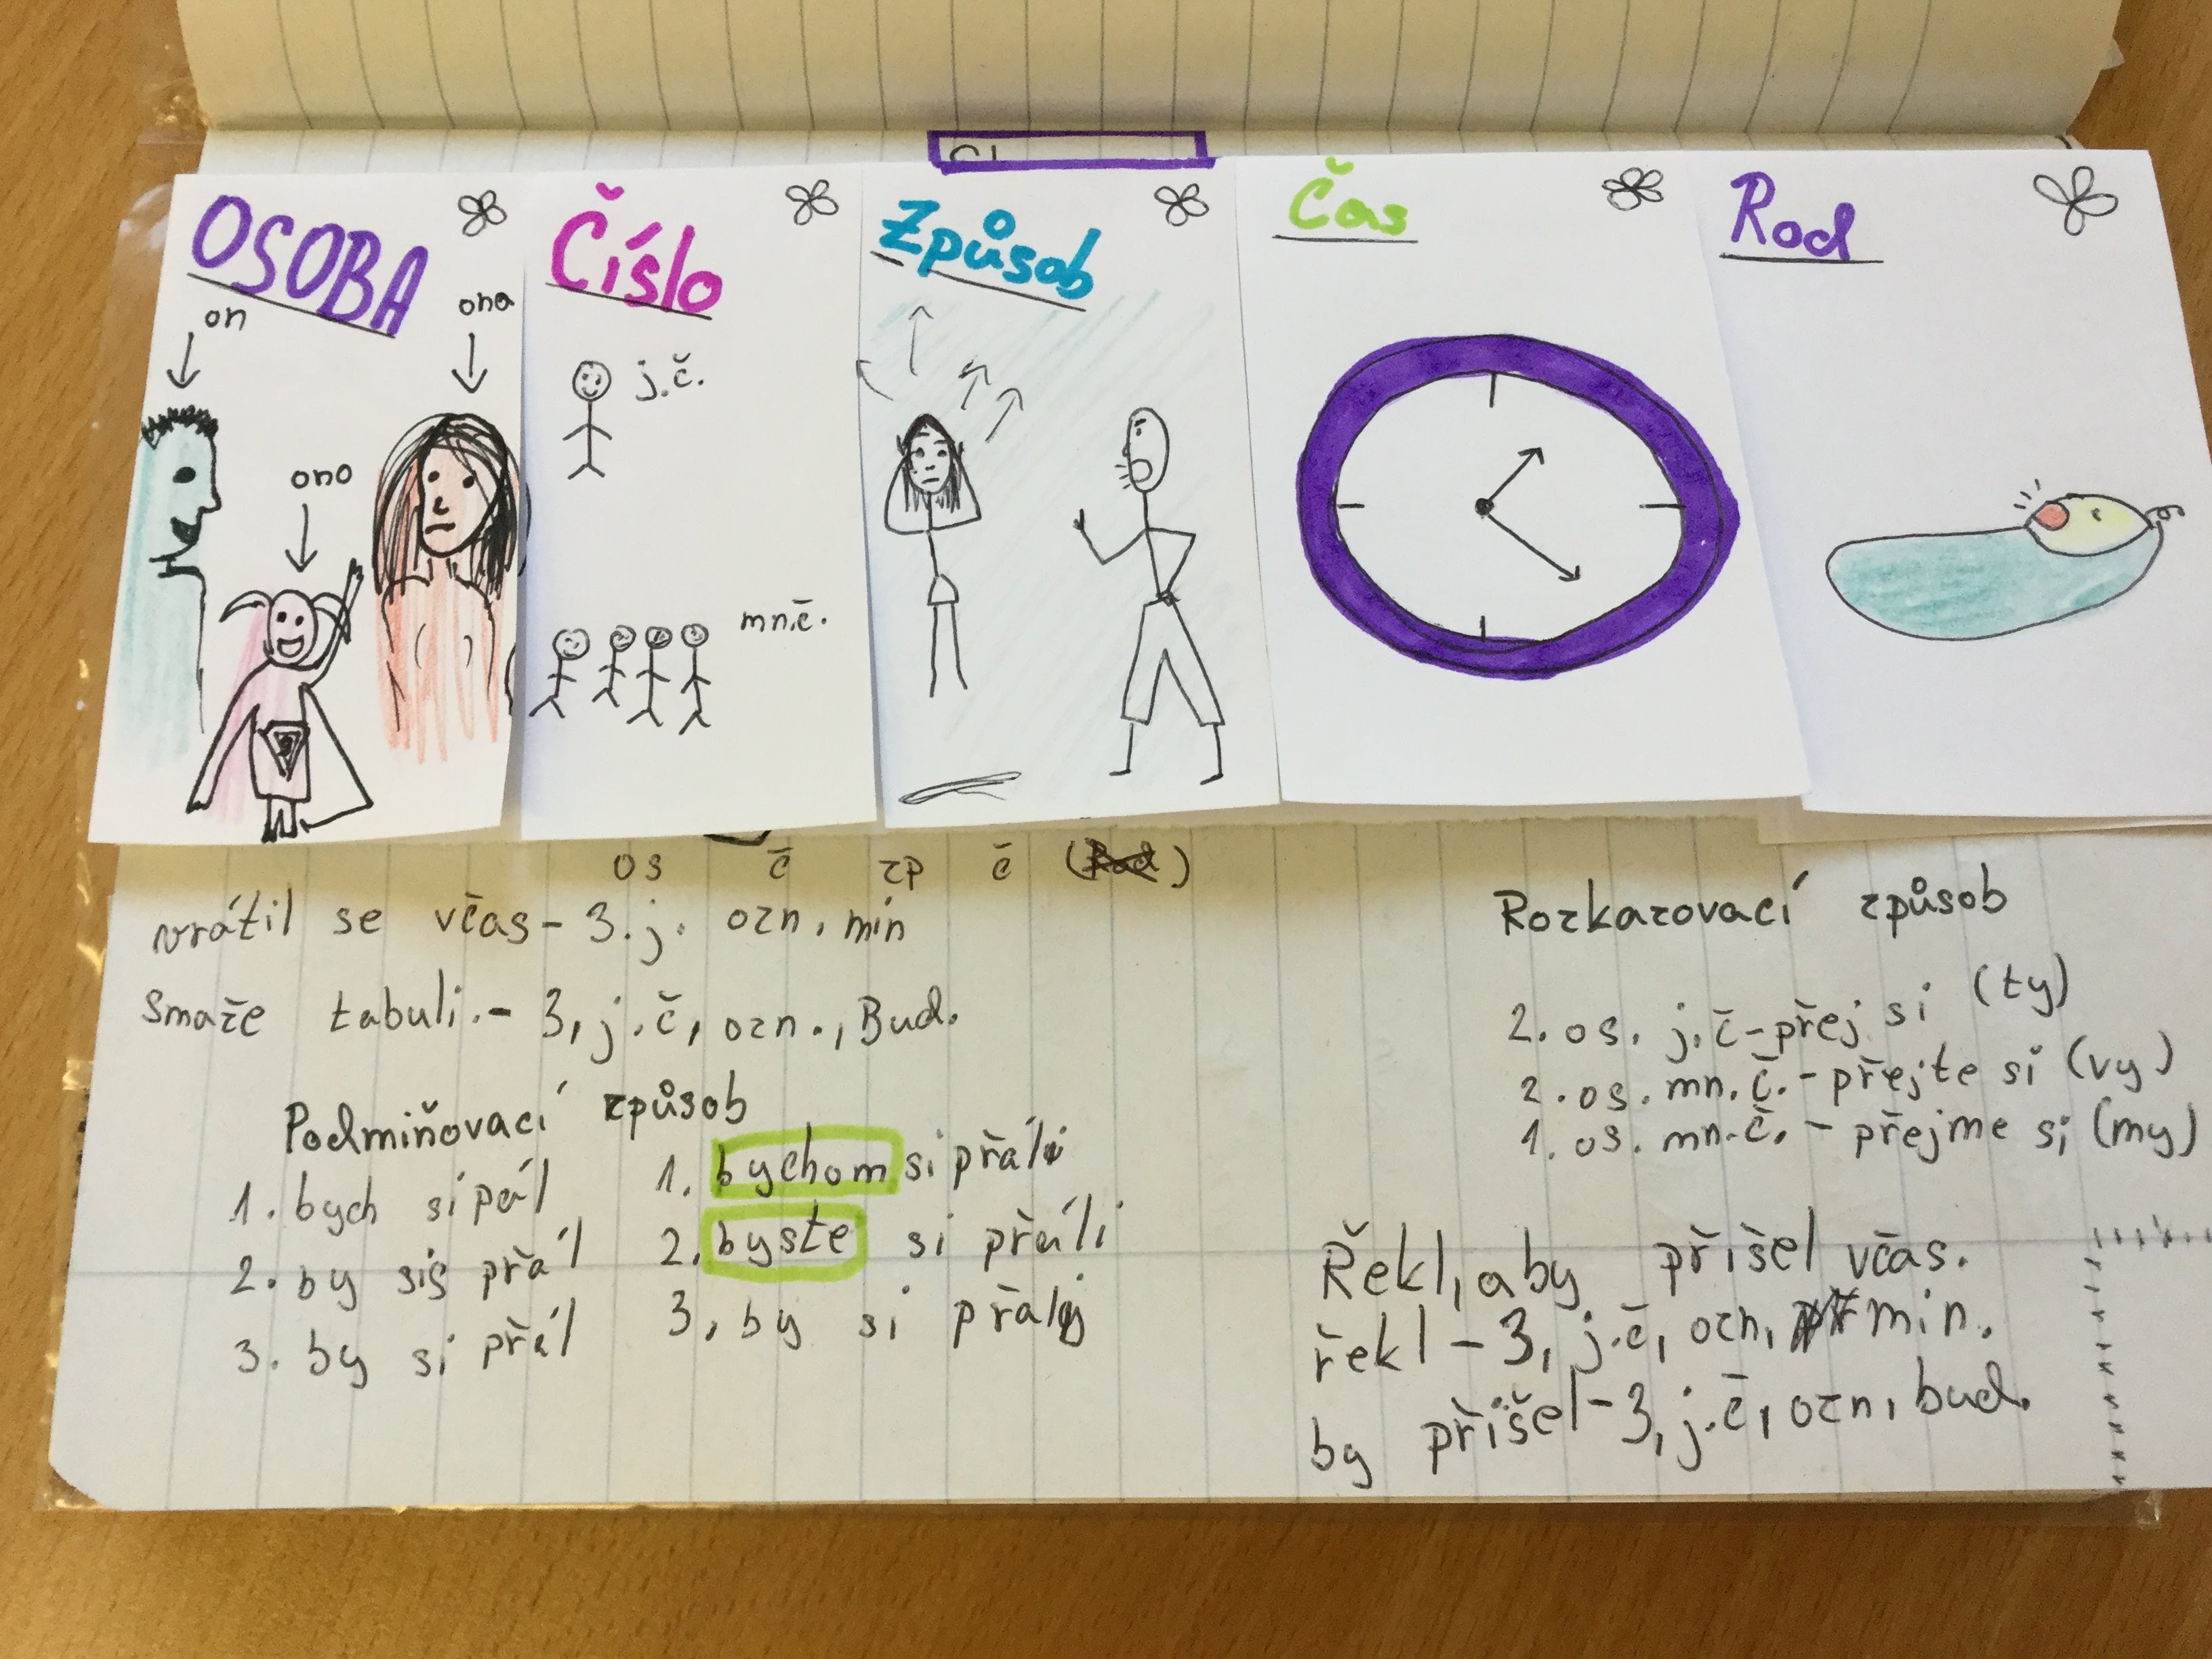 OSOBA
on
ona
ono
Číslo
j.č.
mn.č.
Způsob
Čas
Rod
os č zp č
vrátil se včas - 3. j. ozn. min
Smaže tabuli. - 3, j.č, ozn., Bud.
Podmiňovací způsob
1. bych si pál
2. by sis přál
3. by si přál
1. bychom si přáli
2. byste si přáli
3. by si přaly
Rozkazovací způsob
2. os. j.č - přej si (ty)
2. os. mn.č. - přejte si (vy)
1. os. mn.č. - přejme si (my)
Řekl, aby přišel včas.
řekl - 3, j.č, ozn, min.
by přišel - 3, j.č, ozn, bud.